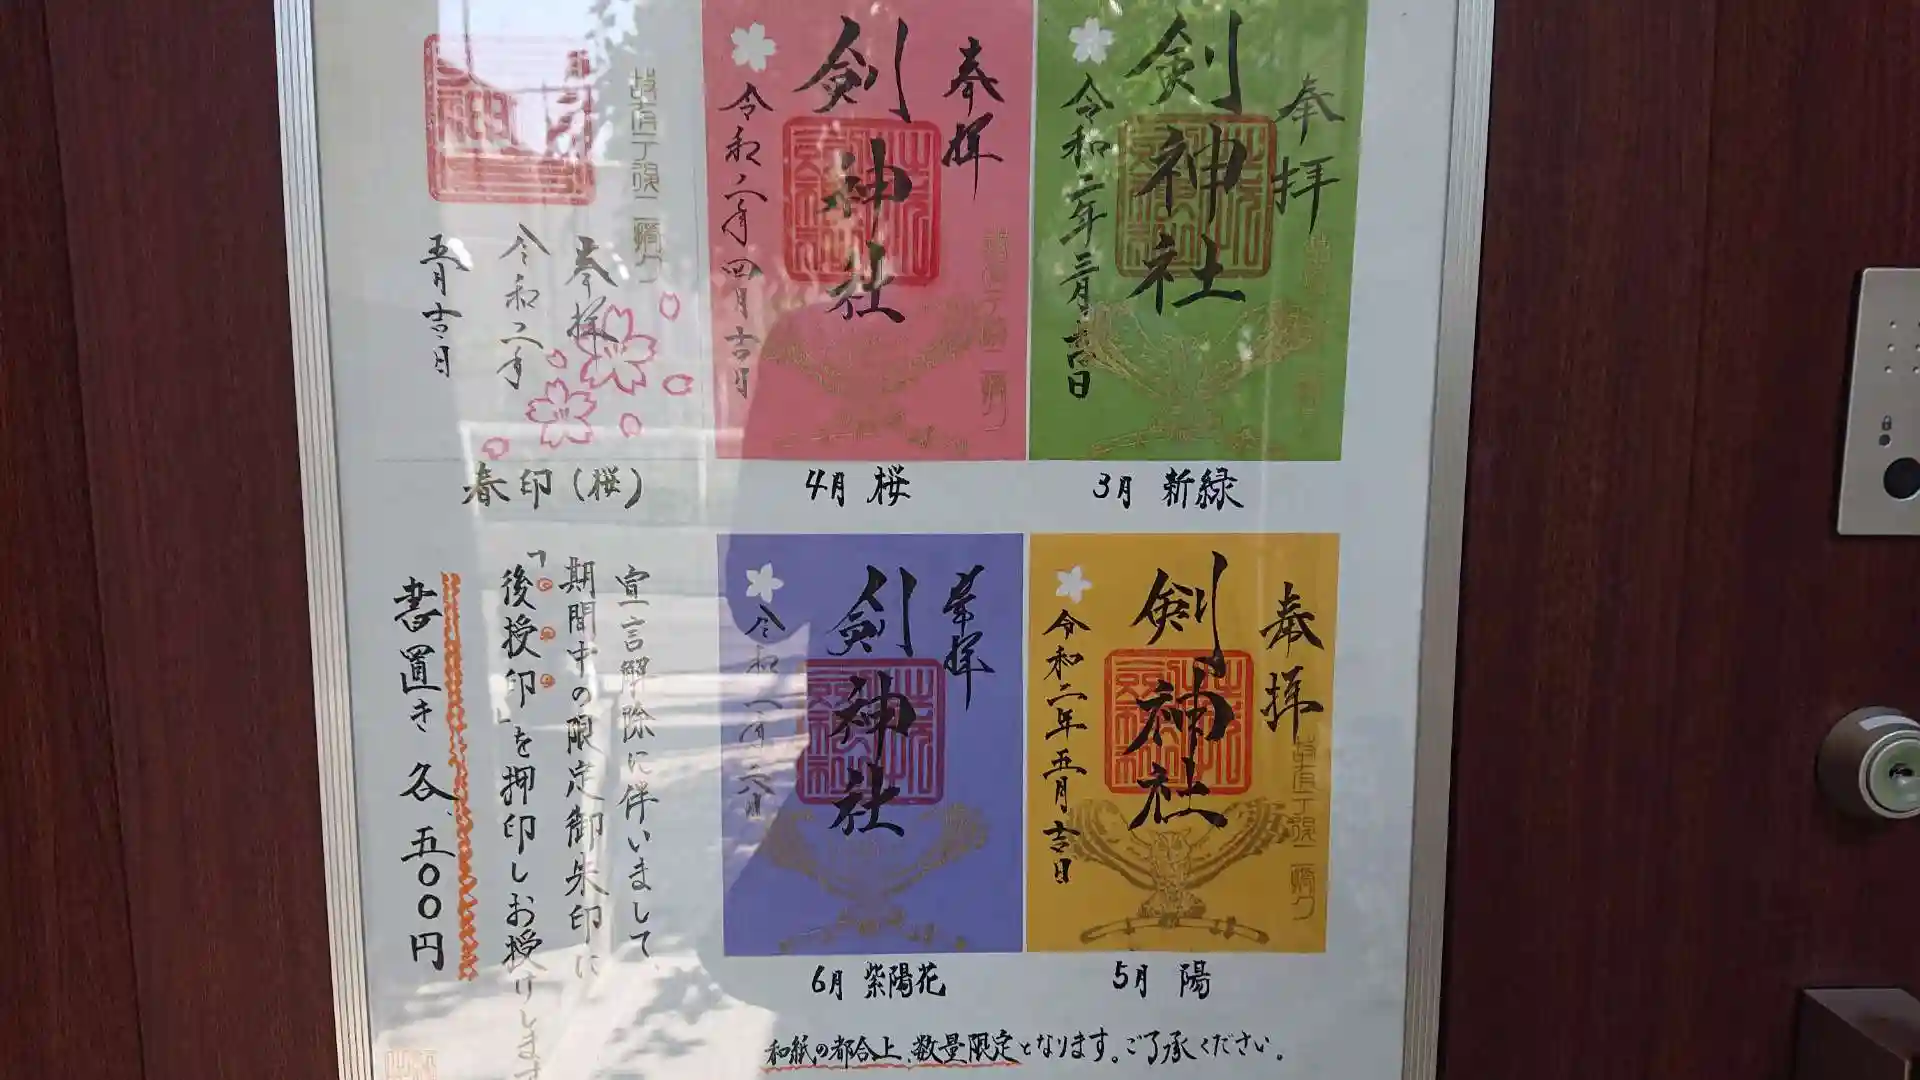 奉拝
剣神社
令和二年三月吉日
3月 新緑
奉拝
剣神社
令和二年四月吉日
4月 桜
奉拝
令和二年
五月吉日
春印(桜)
奉拝
剣神社
令和二年五月吉日
5月 陽
奉拝
剣神社
令和二年六月
6月 紫陽花
宣言解除に伴いまして、
期間中の限定御朱印に
「後授印」を押印しお授けします
書置き 各、五〇〇円
和紙の都合上、数量限定となります。ご了承ください。